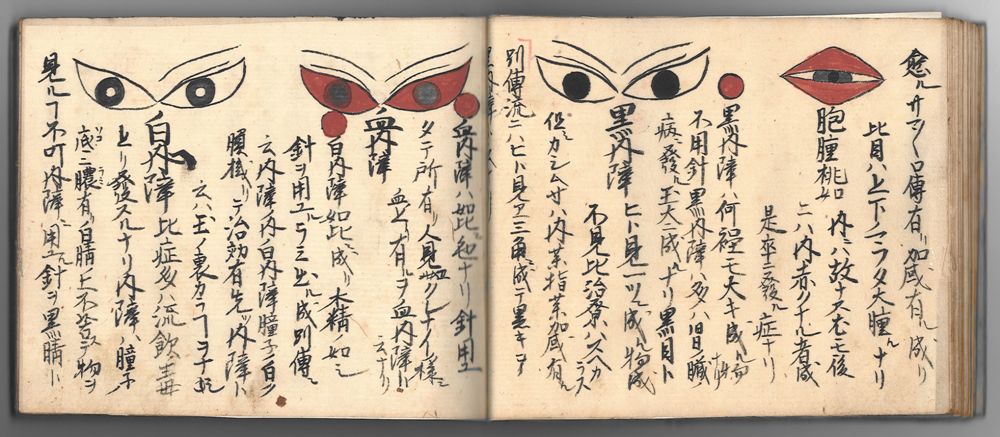 愈ルサマ〱口傳有リ加咸有ル成リ
此目ハ上下ノマフタ大腫ルナリ
胞腫桃如 内ニハ故ナス尤モ後
ニハ内赤クナル者成
是卒ニ發ル症ナリ
黒内障ハ何程モ大キ成ル物
不用針黒内障ハ多ハ旧臓
病ニ發ル玉大ニ成ルナリ黒目ト
黒内障 ヒトミ見一ツニ成ル物成
不見此治療ハスヘカラス
内薬指薬加咸有ル
別傳流ニハヒトミ見ア三角ニ成テ黒キヲ
血内障ハ如此色ナリ針用ユ
タテ所有リ人見血クレナイノ様ニ
血内障 血上リ有ルヲ血内障ト云ナリ
白内障如此ニ成リ水精ノ如シ
針ヲ用ユル 出ル成別傳ニ
云内障ノ内白内障瞳子ノ白ク
膜 治効有先ツ内障ト
云ハ玉ノ裏カラ
白内障 此症多ハ流飲ノ毒
ヨリ發スルナリ内障ノ瞳子
底ニ膿有リ白睛上不 物ヲ
見ルヿ不可内障ニ用ユル針ヲ黒睛ト